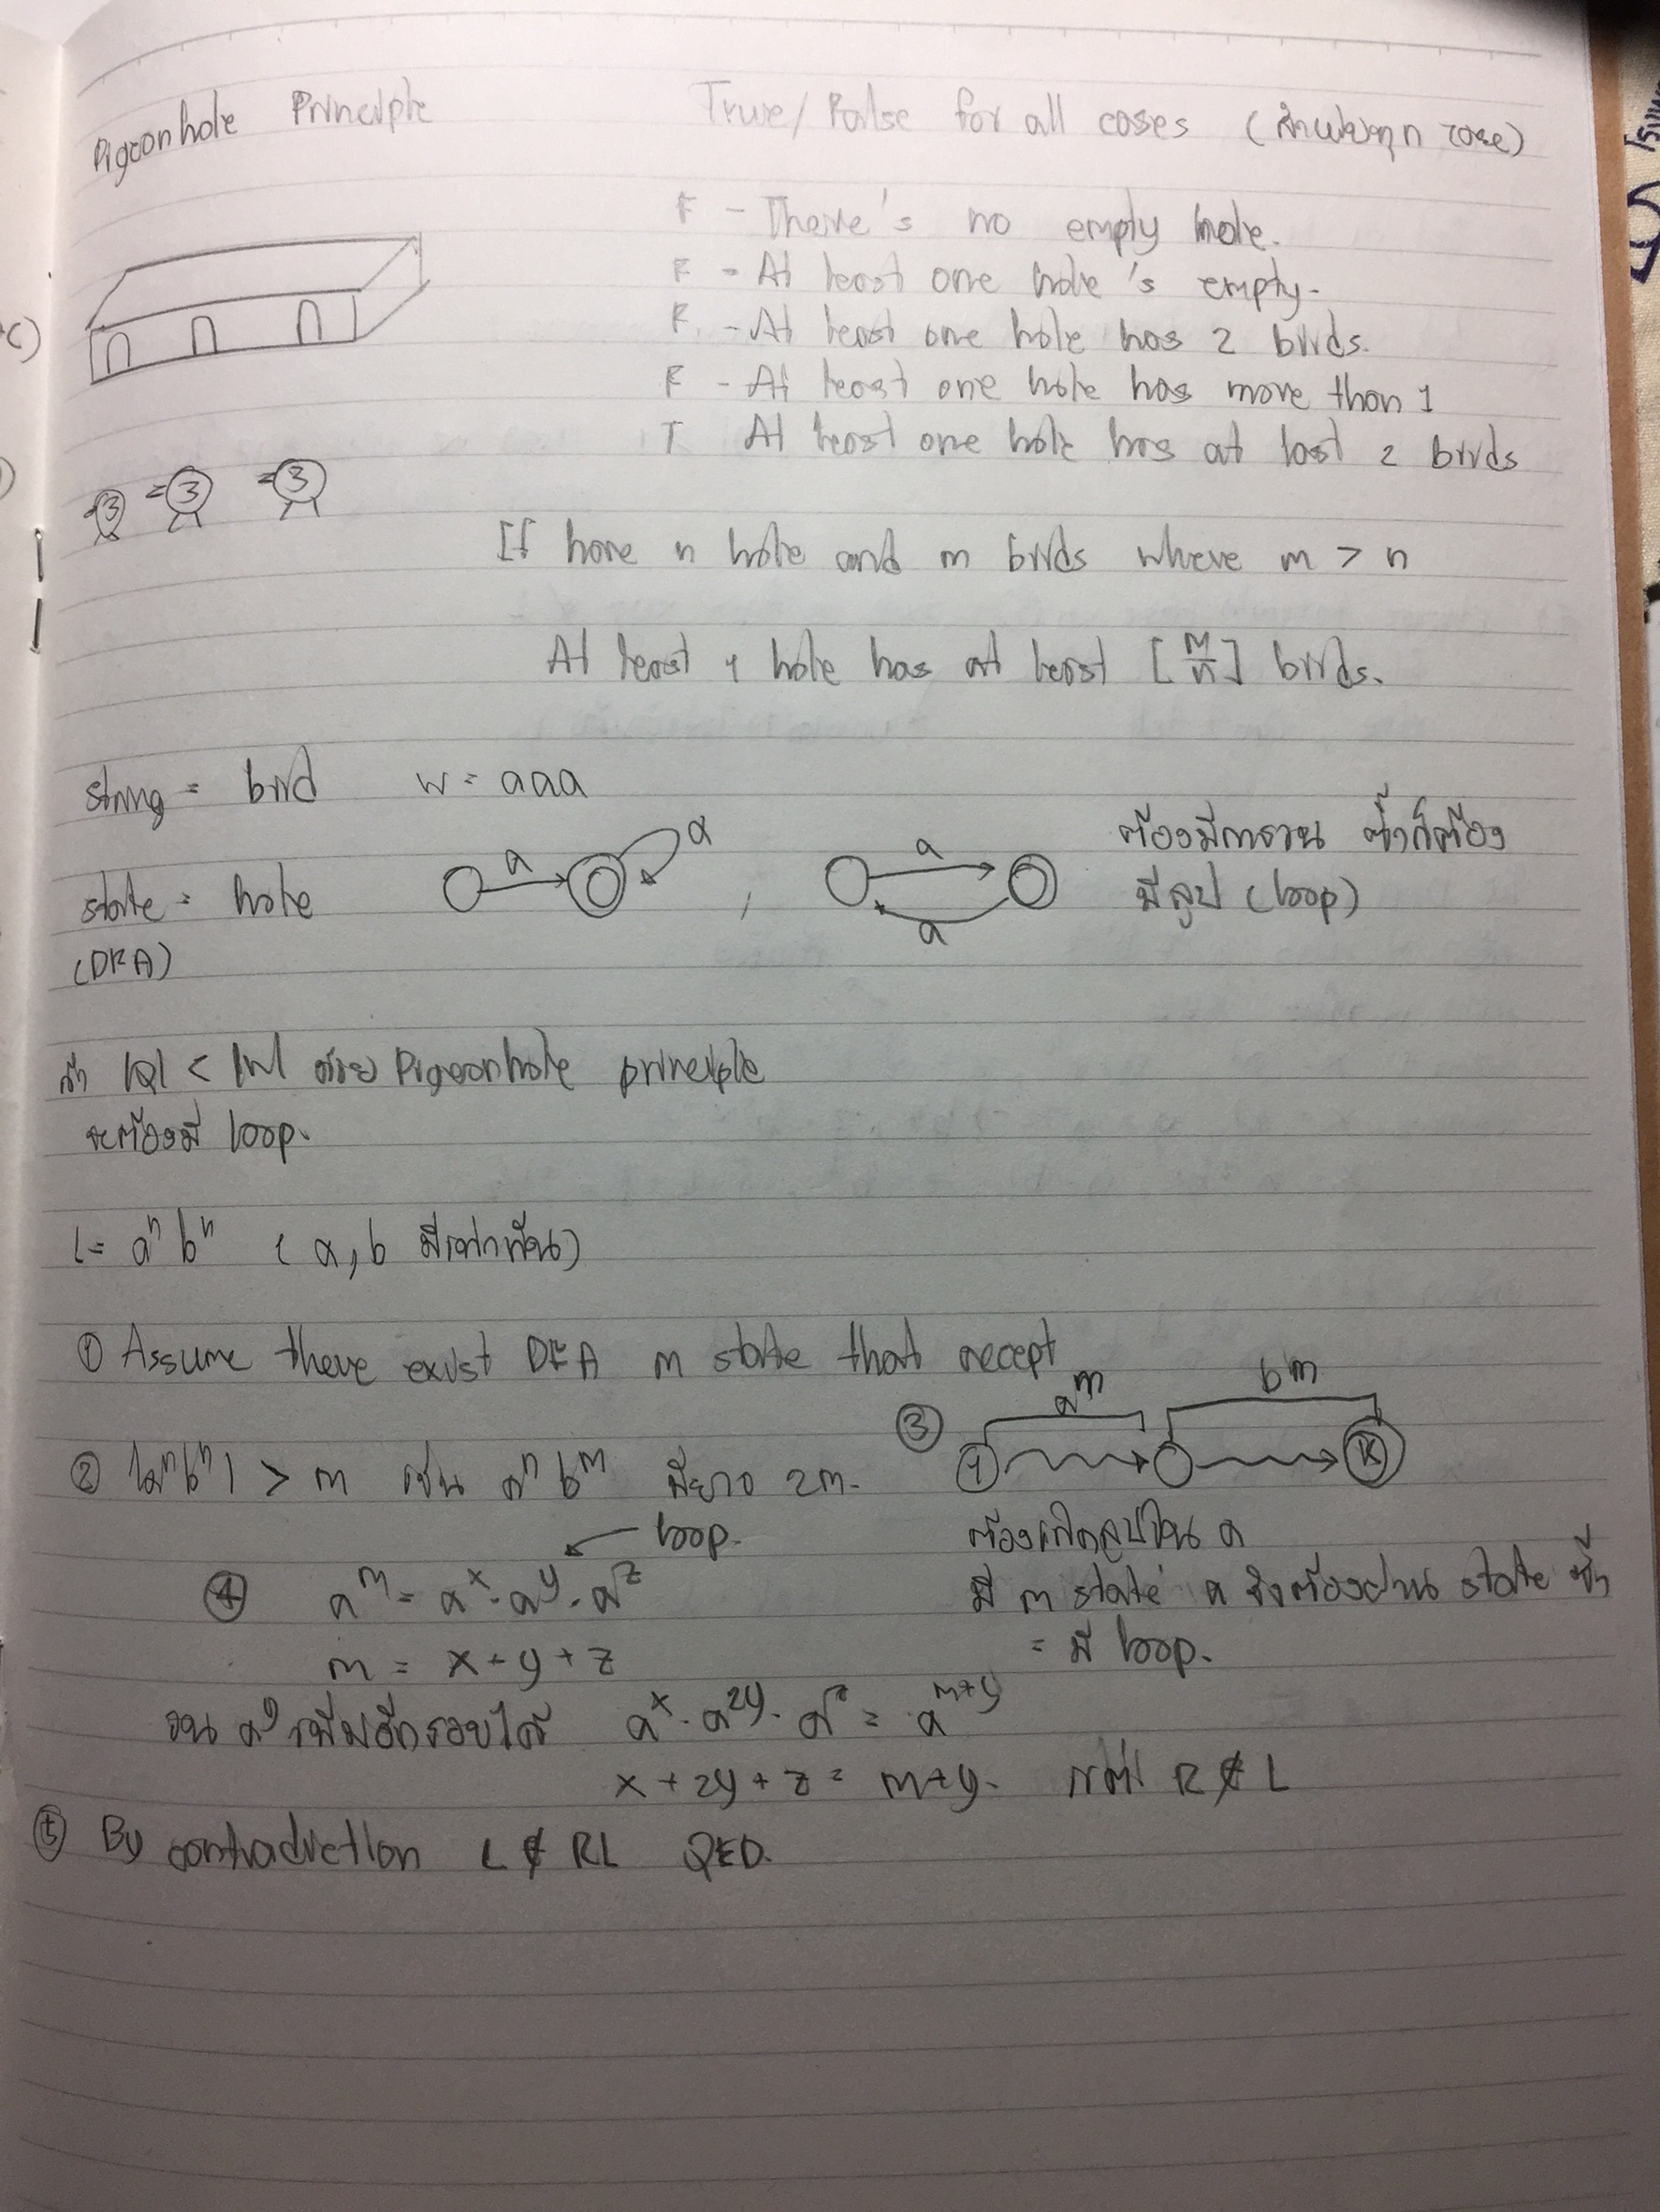 Pigeonhole Principle
True/False for all cases (สำหรับทุก case)
F - There's no empty hole.
F - At least one hole's empty.
F. - At least one hole has 2 birds.
F - At least one hole has more than 1
T At least one hole has at last 2 birds
3 3 3
If have n hole and m birds where m > n
At least 1 hole has at least [m/n] birds.
string = bird w = aaa
state = hole
(DFA)
a a , a a
ต้องมีการวน ซ้ำก็ต้อง
มีลูป (loop)
ถ้า |Q| < |w| ด้วย Pigeonhole principle
จะต้องมี loop.
L = aⁿ bⁿ ( a, b มีเท่ากัน)
① Assume there exist DFA m state that accept
② |aⁿbⁿ| > m เช่น aⁿ bᵐ มียาว 2m.
③ aᵐ bᵐ
1 K
ต้องเกิดลูปใน a
มี m state a จึงต้องผ่าน state ซ้ำ
= มี loop.
loop.
④ aᵐ = aˣ · aʸ · aᶻ
m = x + y + z
วน aʸ เพิ่มอีกรอบได้ aˣ · a²ʸ · aᶻ = aᵐ⁺ʸ
x + 2y + z = m+y. แต่ R ∉ L
⑤ By contradiction L ∉ RL QED.